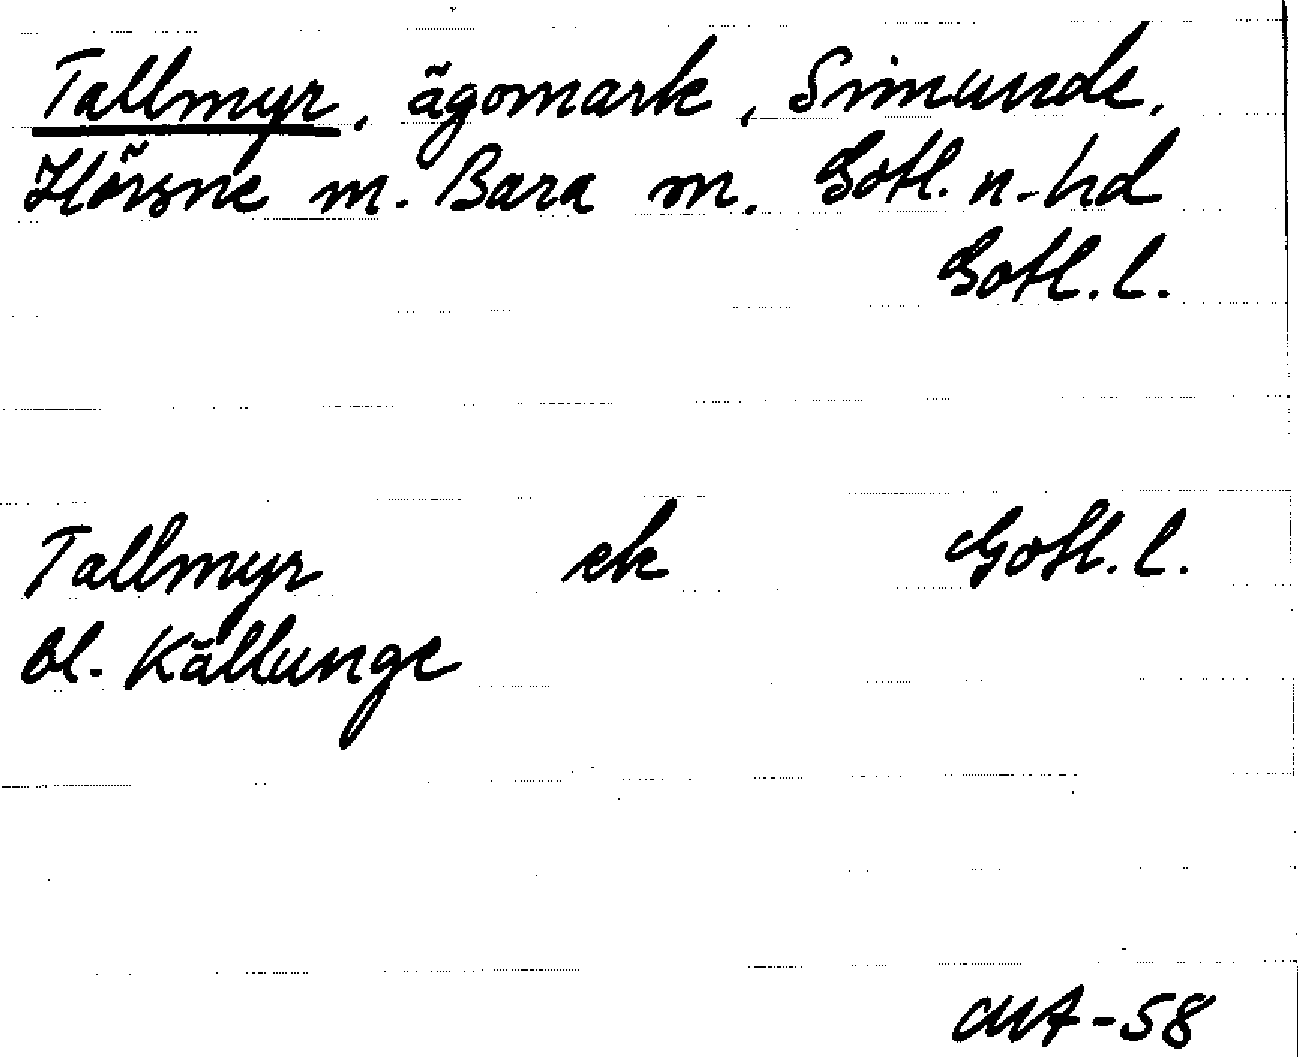 Tallmyr, ägomark, Simunde,
Hörsne m. Bara sn. Gotl. n. hd
Gotl. l.
Tallmyr ek Gotl. l.
Bl. Källunge
MA-58